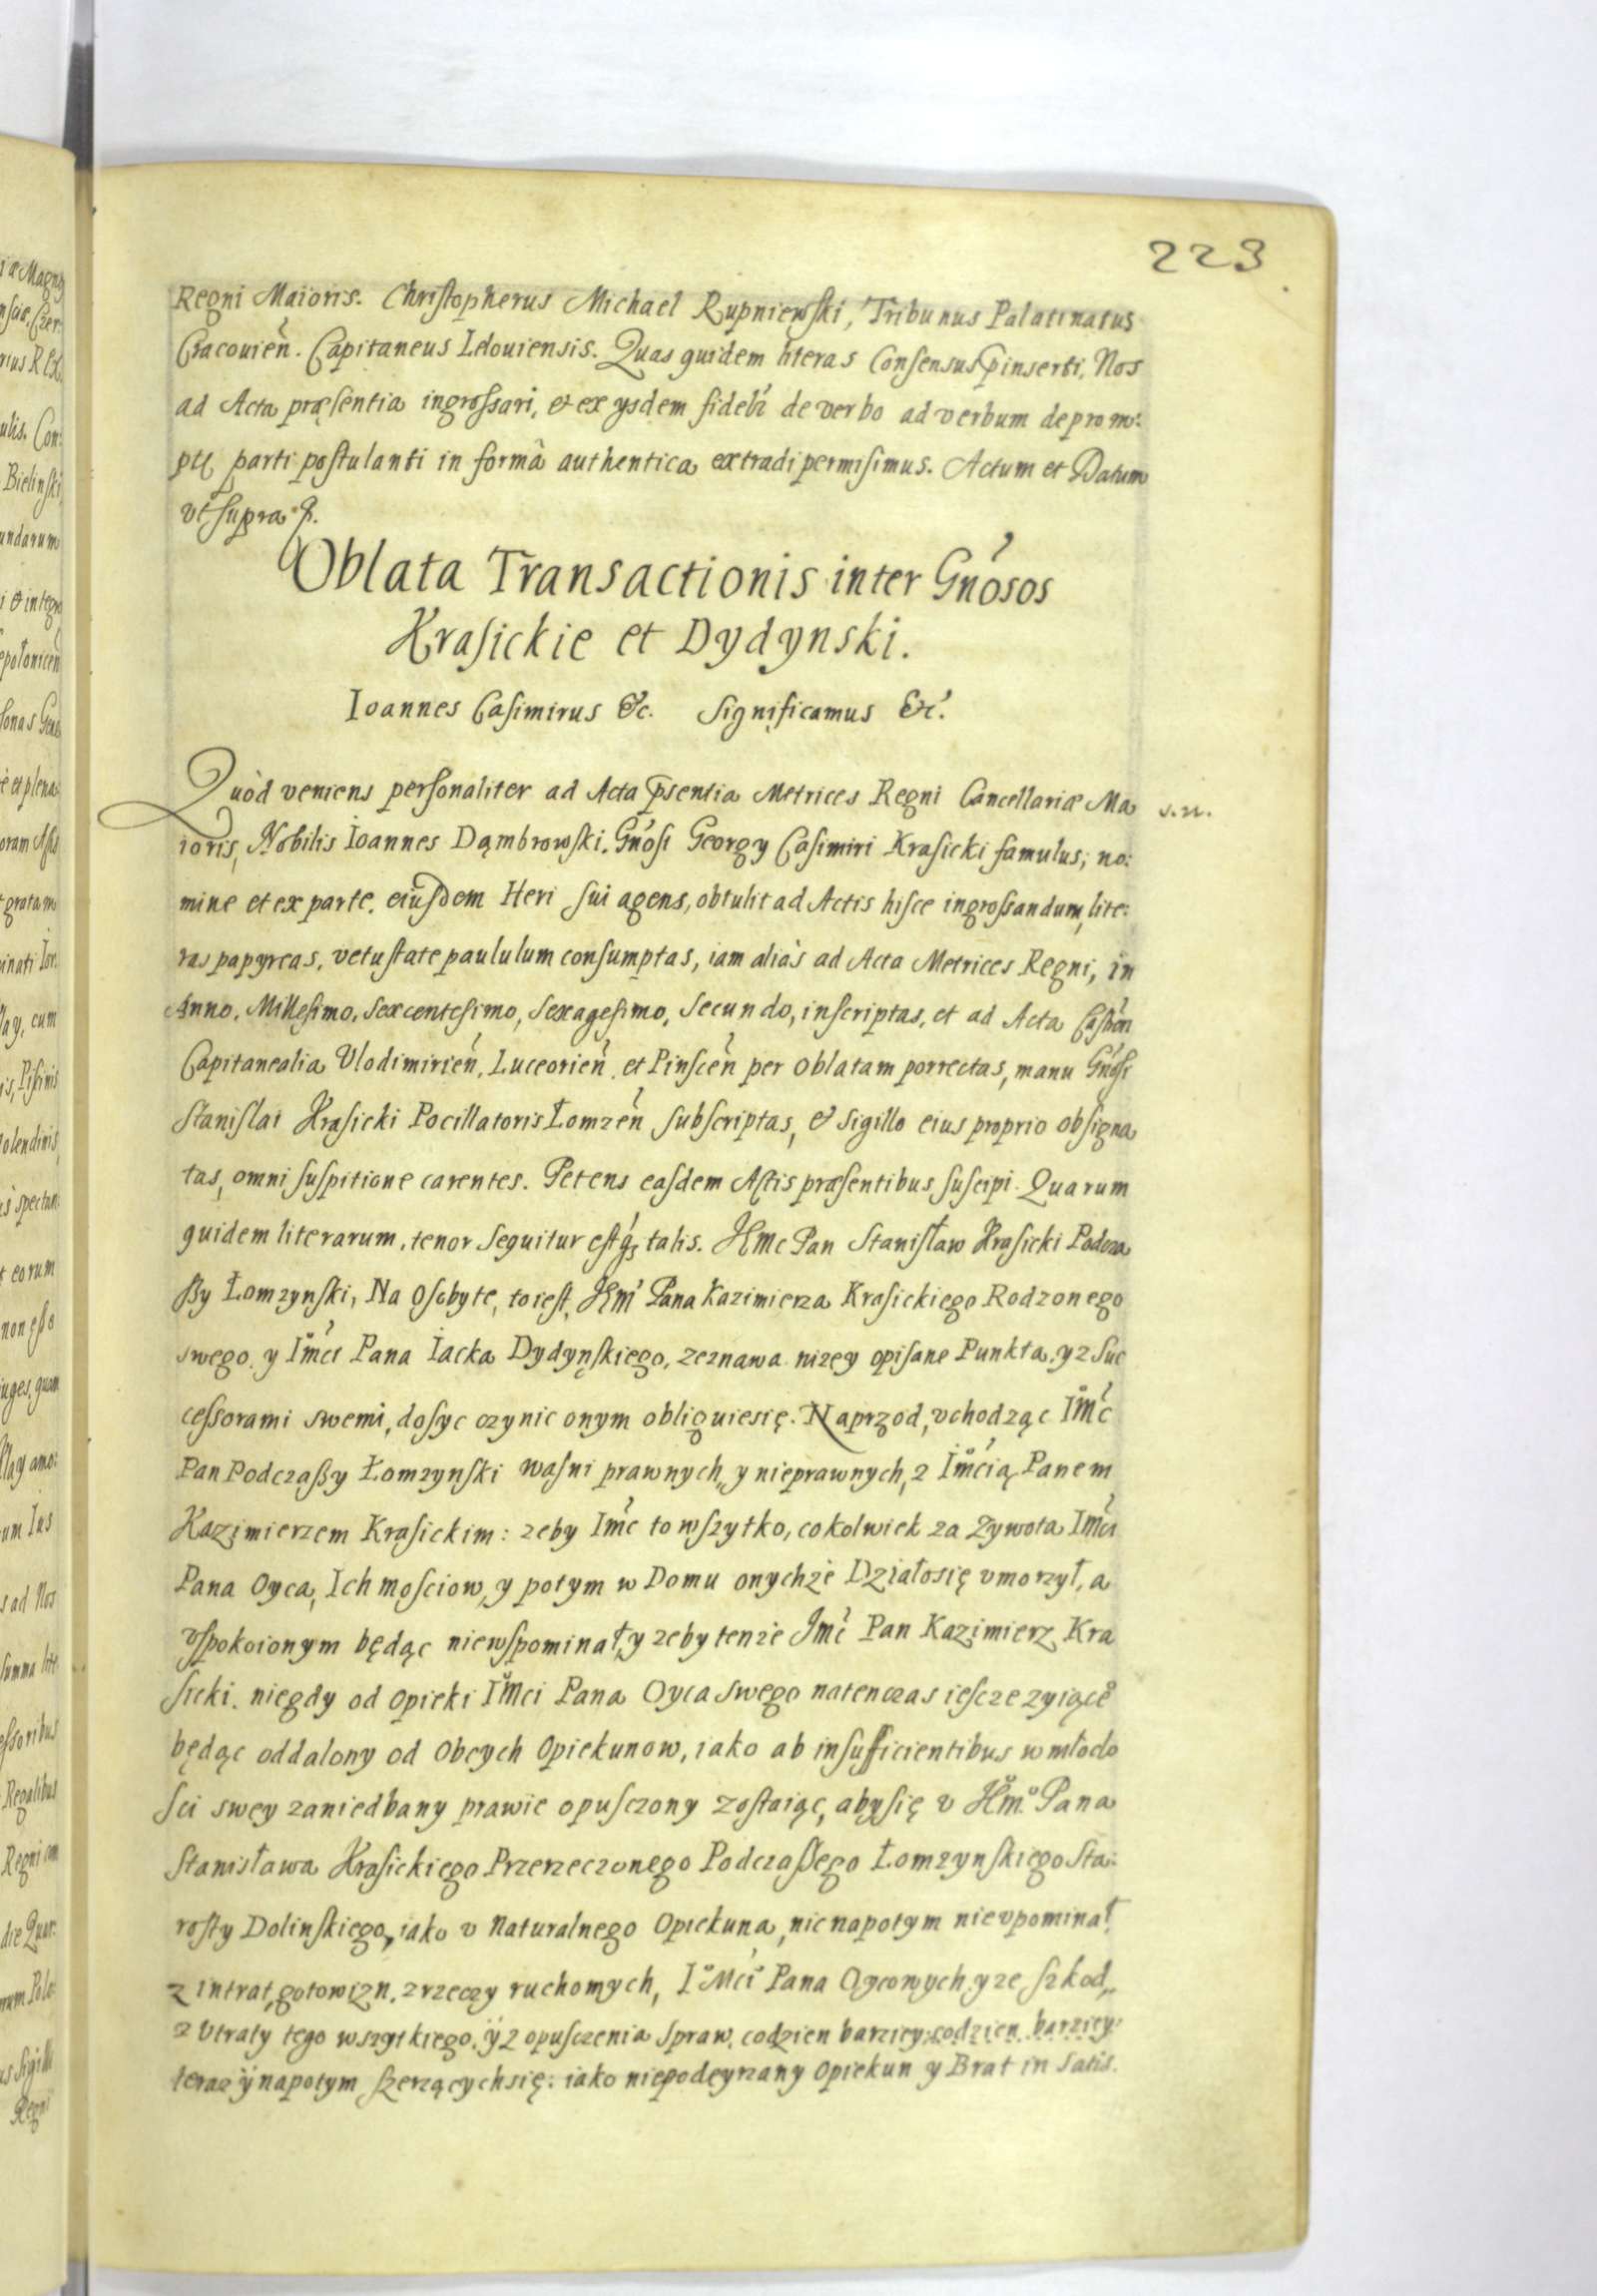 223
Regni Maioris. Christopherus Michael Rupniewski, Tribunus Palatinatus
Cracouien̄. Capitaneus Lelouiensis. Quas quidem literas Consensus p̄inserti, Nos
ad Acta præsentia ingrossari, et ex ysdem fidelr̄ de verbo ad verbum deprom:
ptę parti postulanti in formâ authentica extradi permisimus. Actum et Datum
vt supra
Oblata Transactionis inter Gn̄osos
Krasickie et Dydynski.
Ioannes Casimirus &c. Significamus &c.
Quòd veniens personaliter ad Acta p̄sentia Metrices Regni Cancellariæ Ma
s.n.
ioris, Nobilis Ioannes Dąmbrowski. Gn̄osi Georgy Casimiri Krasicki famulus, no:
mine et ex parte. eiusdem Heri sui agens, obtulit ad Actis hisce ingrossandum, lite:
ras papyreas, vetustate paululum consumptas, iam aliàs ad Acta Metrices Regni, in
Anno. Millesimo, Sexcentesimo, Sexagesimo, Secundo, inscriptas, et ad Acta Castr̄en
Capitanealia Vlodimirien̄, Luceorien̄. et Pinscen̄ per Oblatam porrectas, manu Gn̄osi
Stanislai Krasicki Pocillatoris Łomzen̄ subscriptas, & sigillo eius proprio obsigna
tas, omni suspitione carentes. Petens easdem Actis præsentibus suscipi. Quarum
quidem literarum, tenor sequitur estq́ꝫ talis. Jḿc Pan Stanisław Krasicki Podcza
szy Łomzynski, Na Osoby te, to iest, Jm̊ Pana Kazimierza Krasickiego Rodzonego
swego. y Im̊ci Pana Iacka Dydyńskiego, zeznawa nizey opisane Punkta, y z Suc
cessorami swemi, dosyc czynic onym obliguie się. Naprzod, vchodząc Im̊c
Pan Podczaszy Łomzynski wasni prawnych, y nieprawnych, z Im̊cią Panem
Kazimierzem Krasickim: zeby Im̄c to wszytko, cokolwiek za Zywota Im̄ci
Pana Oyca, Ich mosciow, y potym w Domu onychże Działo się vmorzył, a
vspokoionym będąc niewspominał, y zeby tenże Jm̄c Pan Kazimierz Kra
sicki. niegdy od opieki Im̊ci Pana Oyca swego natenczas iescze zyiące̊
będąc oddalony od Obcych Opiekunow, iako ab insufficientibus w młodo
sci swey zaniedbany prawie opusczony zostaiąc, aby się v Jm̊º Pana
Stanisława Krasickiego Przerzeczonego Podczaszego Łomzynskiego Sta:
rosty Dolinskiego, iako v Naturalnego Opiekuna, nic napotym nie vpominał
z intrat, gotowizn. z rzeczy ruchomych, I̊Mci Pana Oycowych, y ze szkod,,
z Vtraty tego wszytkiego. ÿ z opusczenia spraw, codzien barziey: codzien barziey:
teraz ÿ napotym szerzących się: iako niepodeyrzany Opiekun y Brat in satis.